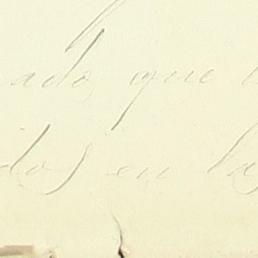 ado que
idos en la